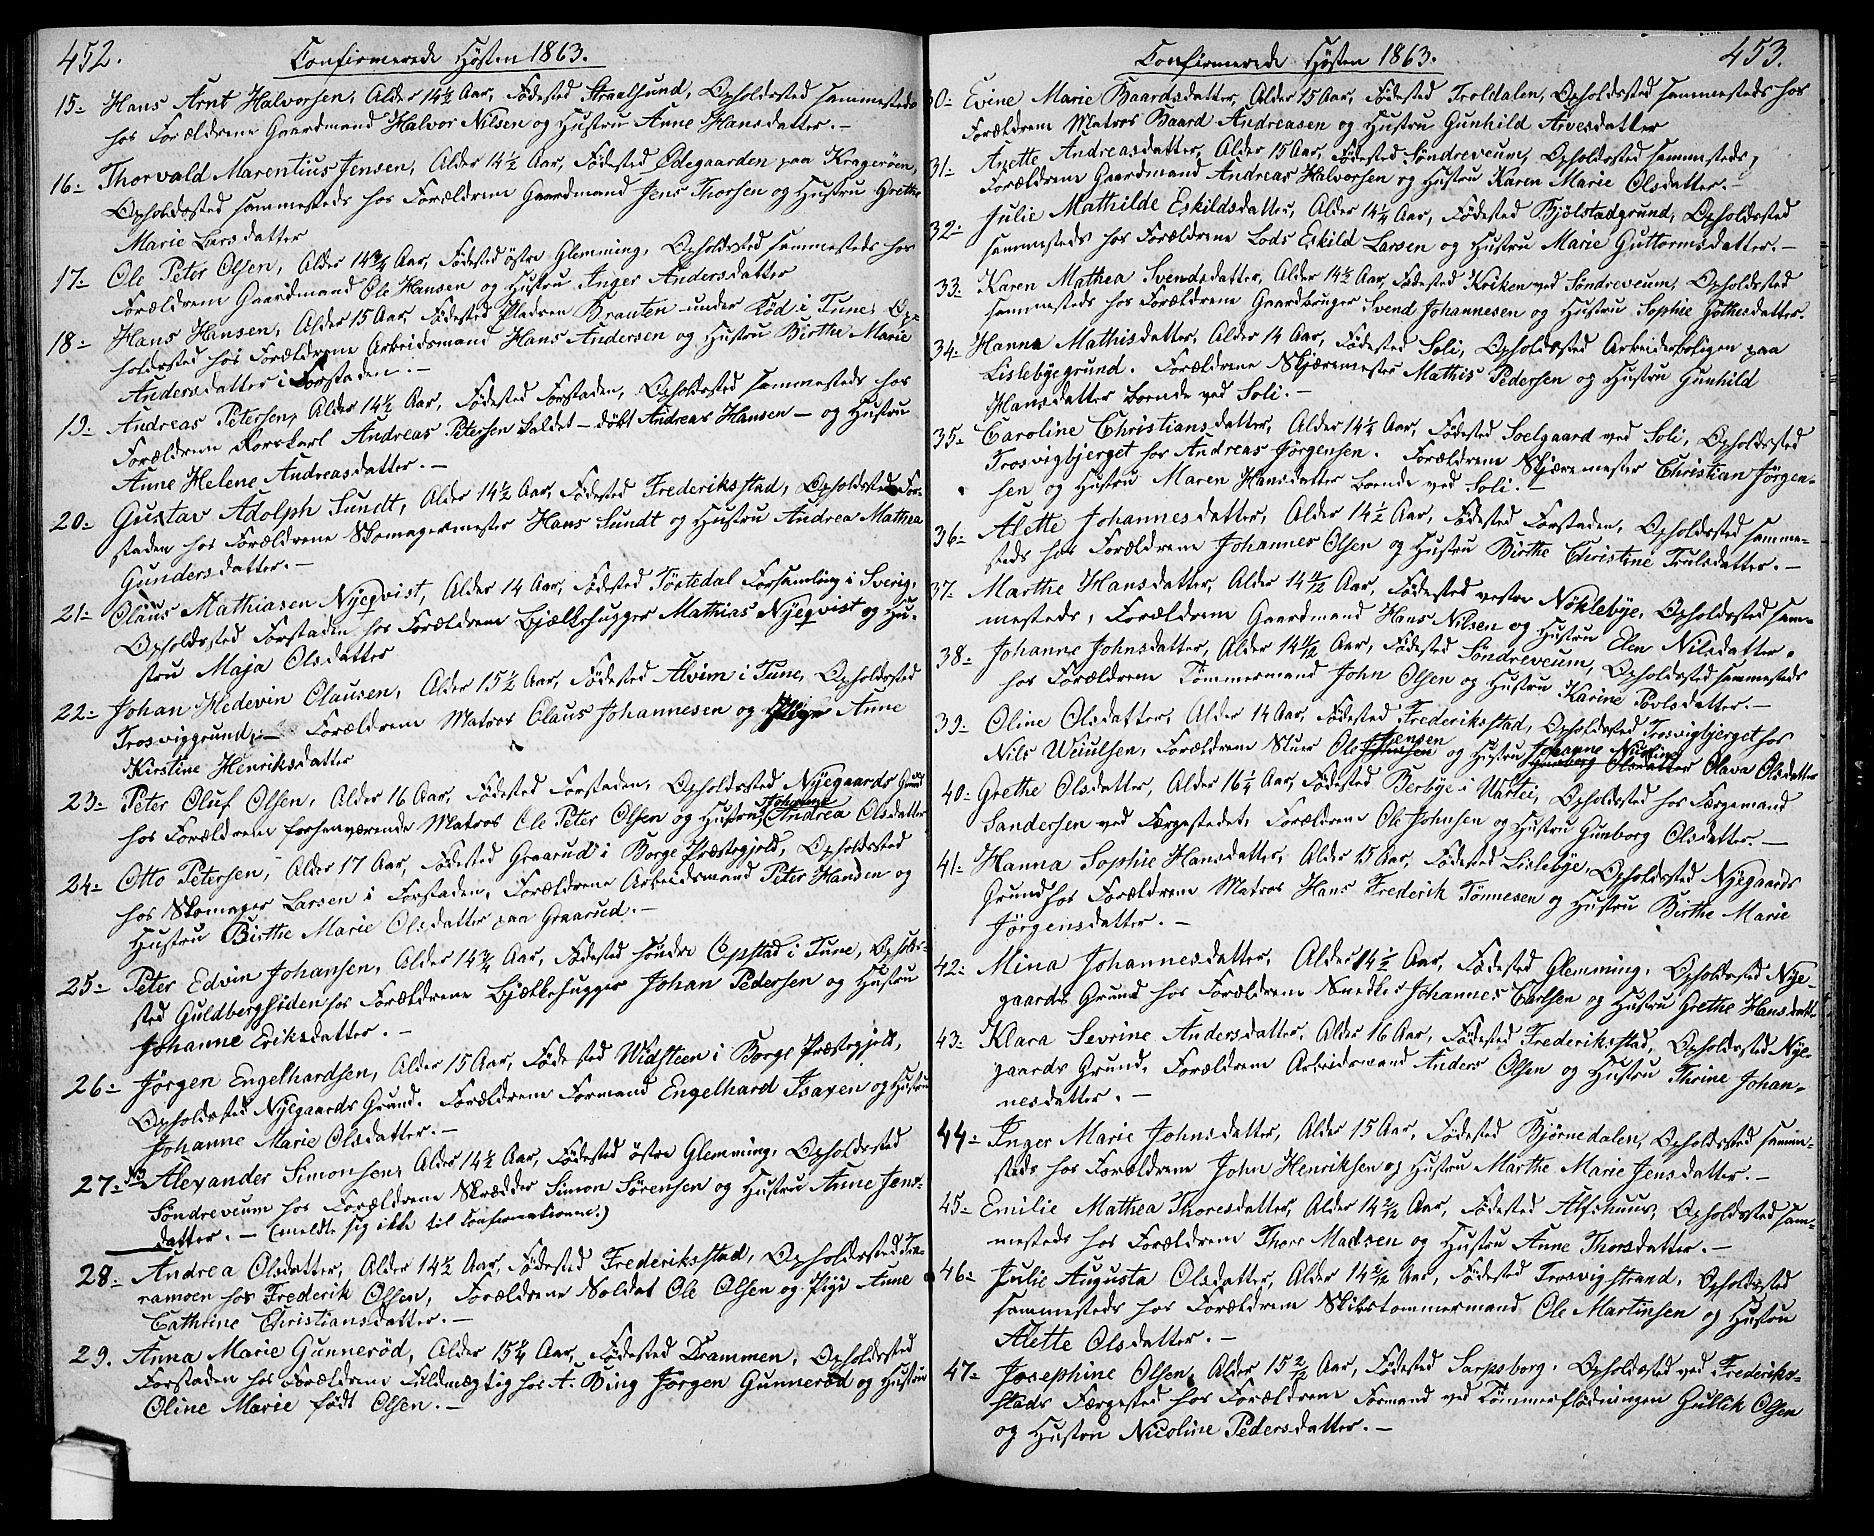 452.
Confirmerede Høsten 1863.
15- Hans Arnt Halvorsen, Alder 14½ Aar, Fødested Straalsund, Opholdssted sammesteds
hos Forældrene Gaardmand Halvor Nilsen og Hustru Anne Hansdatter.-
16- Thorvald Marentius Jensen, Alder 14½ Aar, Fødested Ødegaarden paa Kragerøen,
Opholdssted sammesteds hos Forældrene Gaardmand Jens Thorsen og Hustru Grethe
Marie Larsdatter
17- Ole Peter Olsen, Alder 14¾ Aar, Fødested østre Glemming, Opholdssted sammesteds hos
Forældrene Gaardmand Ole Hansen og Hustru Inger Andersdatter
18- Hans Hansen, Alder 15 Aar, Fødested Pladsen Brauten under Rød i Tune, Op-
holdssted hos Forældrene Arbeidsmand Hans Andersen og Hustru Birthe Marie
Andersdatter i Forstaden.-
19- Andreas Petersen, Alder 14½ Aar, Fødested Forstaden, Opholdssted sammesteds hos
Forældrene Rorskarl Andreas Petersen kaldet - døbt Andreas Hansen - og Hustru
Anne Helene Andreasdatter.-
20- Gustav Adolph Sundt, Alder 14½ Aar, Fødested Frederiksstad, Opholdssted For-
staden hos Forældrene Skomagermester Hans Sundt og Hustru Andrea Mathea
Gundersdatter.-
21- Olaus Mathiasen Nyeqvist, Alder 14 Aar, Fødested Töstedal Forsamling i Sverig,
Opholdssted Forstaden hos Forældrene Bjælkehugger Mathias Nyeqvist og Hu-
stru Maja Olsdatter
22- Johan Hedevin Clausen, Alder 15½ Aar, Fødested Alvim i Tune, Opholdssted
Trosviggrund.- Forældrene Matros Claus Johannesen og Pige Anne
Kirstine Henriksdatter
23- Peter Oluf Olsen, Alder 16 Aar, Fødested Forstaden, Opholdssted Nyegaards Grund
hos Forældrene forhenværende Matros Ole Peter Olsen og Hustru Johanne Andrea Olsdatter
24- Otto Petersen, Alder 17 Aar, Fødested Graarud i Borge Præstegjeld, Opholdssted
hos Skomager Larsen i Forstaden, Forældrene Arbeidsmand Peter Hansen og
Hustru Birthe Marie Olsdatter paa Graarud.-
25- Peter Edvin Johansen, Alder 14¾ Aar, Fødested søndre Opstad i Tune, Opholds-
sted Guldbergsiden hos Forældrene Bjælkehugger Johan Pedersen og Hustru
Johanne Eriksdatter.-
26- Jørgen Engelhardsen, Alder 15 Aar, Fødested Widsteen i Borge Præstegjeld,
Opholdssted Nyegaards Grund. Forældrene Formand Engelhard Isaxen og Hustru
Johanne Marie Olsdatter.-
27- Alexander Simonsen, Alder 14½ Aar, Fødested østre Glemming, Opholdssted
Søndreveum hos Forældrene Skrædder Simon Sørensen og Hustru Anne Jens-
datter.- (meldte sig ikke til Confirmationen.)
28- Andrea Olsdatter, Alder 14½ Aar, Fødested Frederiksstad, Opholdssted Tra-
ramoen hos Frederik Olsen, Forældrene Soldat Ole Olsen og Pige Anne
Cathrine Christiansdatter.-
29. Anna Marie Gunnerød, Alder 15¼ Aar, Fødested Drammen, Opholdssted
Forstaden hos Forældrene Fuldmægtig hos A. Bing Jørgen Gunnerød og Hustru
Oline Marie født Olsen.-
453.
Confirmerede Høsten 1863.
30- Evine Marie Baardsdatter, Alder 15 Aar, Fødested Troldalen, Opholdssted sammesteds hos
Forældrene Matros Baard Andreasen og Hustru Gunhild Arvesdatter
31- Anette Andreasdatter, Alder 15 Aar, Fødested Søndreveum, Opholdssted sammesteds,
Forældrene Gaardmand Andreas Halvorsen og Hustru Karen Marie Olsdatter.-
32- Julie Mathilde Eskildsdatter, Alder 14¼ Aar, Fødested Bjølstadgrund, Opholdssted
sammesteds hos Forældrene Lods Eskild Larsen og Hustru Marie Guttormsdatter.-
33- Karen Mathea Svendsdatter, Alder 14½ Aar, Fødested Kriken ved Søndreveum, Opholdssted
sammesteds hos Forældrene Gaardbruger Svend Johannesen og Hustru Sophie Gothesdatter.
34- Hanna Mathisdatter, Alder 14 Aar, Fødested Soli, Opholdssted Arbeiderboligen paa
Lislebyegrund. Forældrene Skjæremester Mathis Pedersen og Hustru Gunhild
Hansdatter boende ved Soli.-
35- Caroline Christiansdatter, Alder 14¼ Aar, Fødested Soelgaard ved Soli, Opholdssted
Trosvigbjerget hos Andreas Jørgensen. Forældrene Skjæremester Christian Jørgen-
sen og Hustru Maren Hansdatter boende ved Soli.-
36- Alette Johannesdatter, Alder 14½ Aar, Fødested Forstaden, Opholdssted samme-
steds hos Forældrene Johannes Olsen og Hustru Birthe Christine Trulsdatter.-
37- Marthe Hansdatter, Alder 14½ Aar, Fødested vestre Nøklebye, Opholdssted sam-
mesteds, Forældrene Gaardmand Hans Nilsen og Hustru Elen Nilsdatter.
38- Johanne Johnsdatter, Alder 14½ Aar, Fødested Søndreveum, Opholdssted sammesteds
hos Forældrene Tømmermand John Olsen og Hustru Karine Povlsdatter.-
39- Oline Olsdatter, Alder 14 Aar, Fødested Frederiksstad, Opholdssted Trosvigbjerget hos
Nils Weiulsen, Forældrene Stuer Ole Jensen og Hustru Johanne Nicoline Gunborg Olsdatter Olava Olsdatter
40- Grethe Olsdatter, Alder 16¼ Aar, Fødested Berbye i Uartei, Opholdssted hos Færgemand
Sandersen ved Færgestedet, Forældrene Ole Johnsen og Hustru Gunborg Olsdatter.-
41- Hanna Sophie Hansdatter, Alder 15 Aar, Fødested Lislebye, Opholdssted Nyegaards
Grund hos Forældrene Matros Hans Frederik Tønnesen og Hustru Birthe Marie
Jørgensdatter.-
42- Mina Johannesdatter, Alder 14½ Aar, Fødested Glemming, Opholdssted Nye-
gaards Grund hos Forældrene Snedker Johannes Carlsen og Hustru Grethe Hansdatter
43- Klara Sevrine Andersdatter, Alder 16 Aar, Fødested Frederiksstad, Opholdssted Nye-
gaards Grund, Forældrene Arbeidsmand Anders Olsen og Hustru Thrine Johan-
nesdatter.-
44- Inger Marie Johnsdatter, Alder 15 Aar, Fødested Bjørnedalen, Opholdssted samme-
steds hos Forældrene John Henriksen og Hustru Marthe Marie Jensdatter.-
45- Emilie Mathea Thoresdatter, Alder 14 Aar, Fødested Alfshuus, Opholdssted sam-
mesteds hos Forældrene Thore Madsen og Hustru Anne Thorsdatter.-
46- Julie Augusta Olsdatter, Alder 14 Aar, Fødested Trosvigstrand, Opholdssted
sammesteds hos Forældrene Skibstømmermand Ole Martinsen og Hustru
Alette Olsdatter.-
47- Josephine Olsen, Alder 15 Aar, Fødested Sarpsborg, Opholdssted ved Frederiks-
stads Færgested hos Forældrene Formand ved Tømmerflødningen Gullik Olsen
og Hustru Nicoline Pedersdatter.-